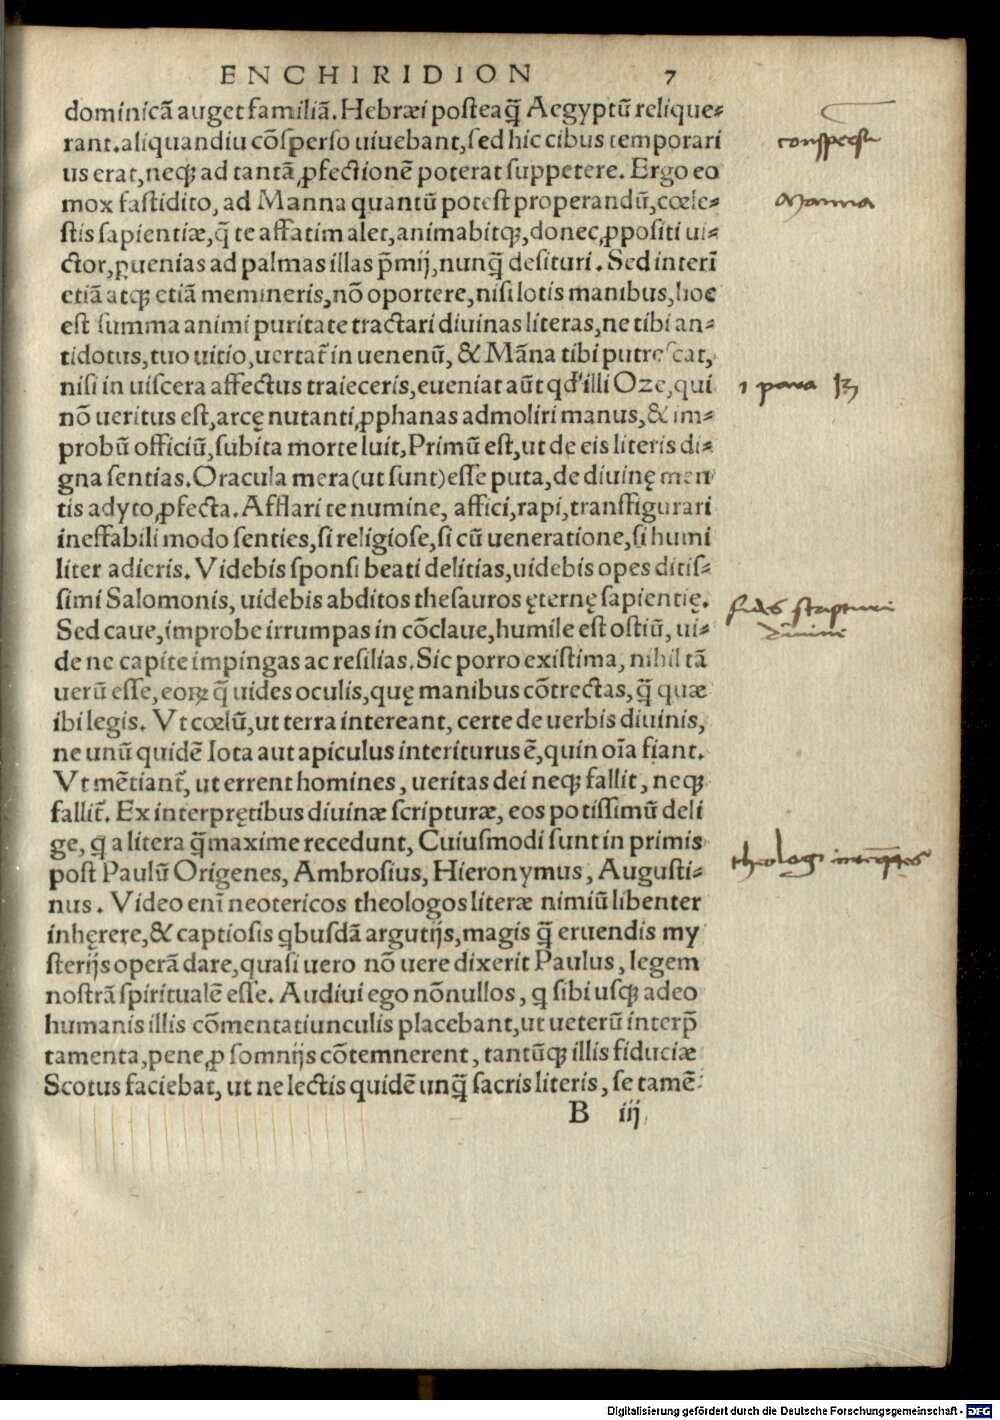 ENCHIRIDION 7
dominicã auget familiã. Hebræi posteaq̃ Aegyptũ relique-
rant. aliquandiu cõsperso uiuebant, sed hic cibus temporari
us erat, neqꝫ ad tantã ꝓfectionẽ poterat suppetere. Ergo eo
mox fastidito, ad Manna quantũ potest properandũ, cœle-
stis sapientiæ, q̃ te affatim alet, animabitqꝫ, donec ꝓpositi ui-
ctor, ꝑuenias ad palmas illas p̃mij, nunq̃ desituri. Sed interĩ
etiã atqꝫ etiã memineris, nõ oportere, nisi lotis manibus, hoc
est summa animi puritate tractari diuinas literas, ne tibi an-
tidotus, tuo uitio, uertat̃ in uenenũ, & Mãna tibi putrescat,
nisi in uiscera affectus traieceris, eueniat aũt qd' illi Oze, qui
nõ ueritus est, arcę nutanti ꝓphanas admoliri manus, & im-
probũ officiũ, subita morte luit, Primũ est, ut de eis literis di-
gna sentias. Oracula mera (ut sunt) esse puta, de diuinę men
tis adyto ꝓfecta. Afflari te numine, affici, rapi, transfigurari
ineffabili modo senties, si religiose, si cũ ueneratione, si humi
liter adieris. Videbis sponsi beati delitias, uidebis opes ditis-
simi Salomonis, uidebis abditos thesauros ęternę sapientię.
Sed caue, improbe irrumpas in cõclaue, humile est ostiũ, ui-
de ne capite impingas ac resilias. Sic porro existima, nihil tã
uerũ esse, eorꝝ q̃ uides oculis, quę manibus cõtrectas, q̃ quæ
ibi legis. Vt cœlũ, ut terra intereant, certe de uerbis diuinis,
ne unũ quidẽ Iota aut apiculus interiturus ẽ, quin oĩa fiant.
Vt mẽtiant̃, ut errent homines, ueritas dei neqꝫ fallit, neqꝫ
fallit̃. Ex interpretibus diuinæ scripturæ, eos potissimũ deli
ge, q̃ a litera q̃ maxime recedunt, Cuiusmodi sunt in primis
post Paulũ Origenes, Ambrosius, Hieronymus, Augusti-
nus. Video enĩ neotericos theologos literæ nimiũ libenter
inhęrere, & captiosis qbusdã argutijs, magis q̃ eruendis my
sterijs operã dare, quasi uero nõ uere dixerit Paulus, legem
nostrã spiritualẽ esse. Audiui ego nõnullos, q sibi usqꝫ adeo
humanis illis cõmentatiunculis placebant, ut ueterũ interp̃
tamenta, pene ꝓ somnijs cõtemnerent, tantũqꝫ illis fiduciæ
Scotus faciebat, ut ne lectis quidẽ unq̃ sacris literis, se tamẽ
B iij
Manna
1 para 13
fides scripture
diuine
theologi interp̃tes
Digitalisierung gefördert durch die Deutsche Forschungsgemeinschaft - DFG